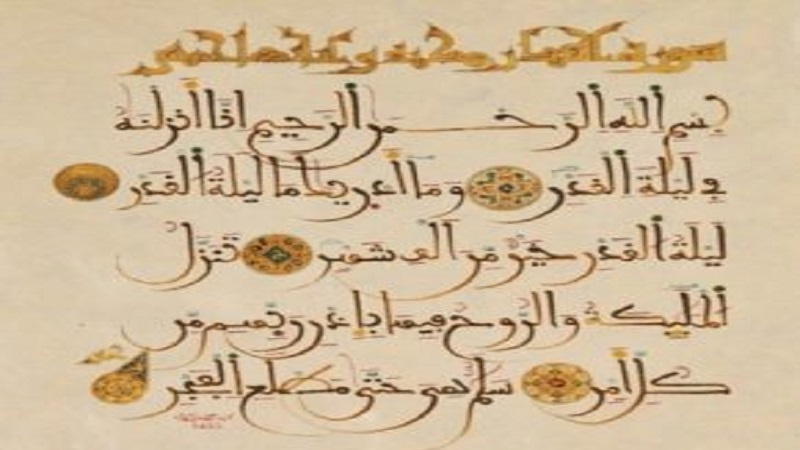 سورة القدر مكية
بِسْمِ اللَّهِ الرَّحْمَنِ الرَّحِيمِ إِنَّا أَنزَلْنَهُ
فِي لَيْلَةِ الْقَدْرِ وَمَا أَدْرِيكَ مَا لَيْلَةُ الْقَدْرِ
لَيْلَةُ الْقَدْرِ خَيْرٌ مِّنْ أَلْفِ شَهْرٍ تَنَزَّلُ
الْمَلَئِكَةُ وَالرُّوحُ فِيهَا بِإِذْنِ رَبِّهِم مِّن
كُلِّ أَمْرٍ سَلَمٌ هِيَ حَتَّى مَطْلَعِ الْفَجْرِ